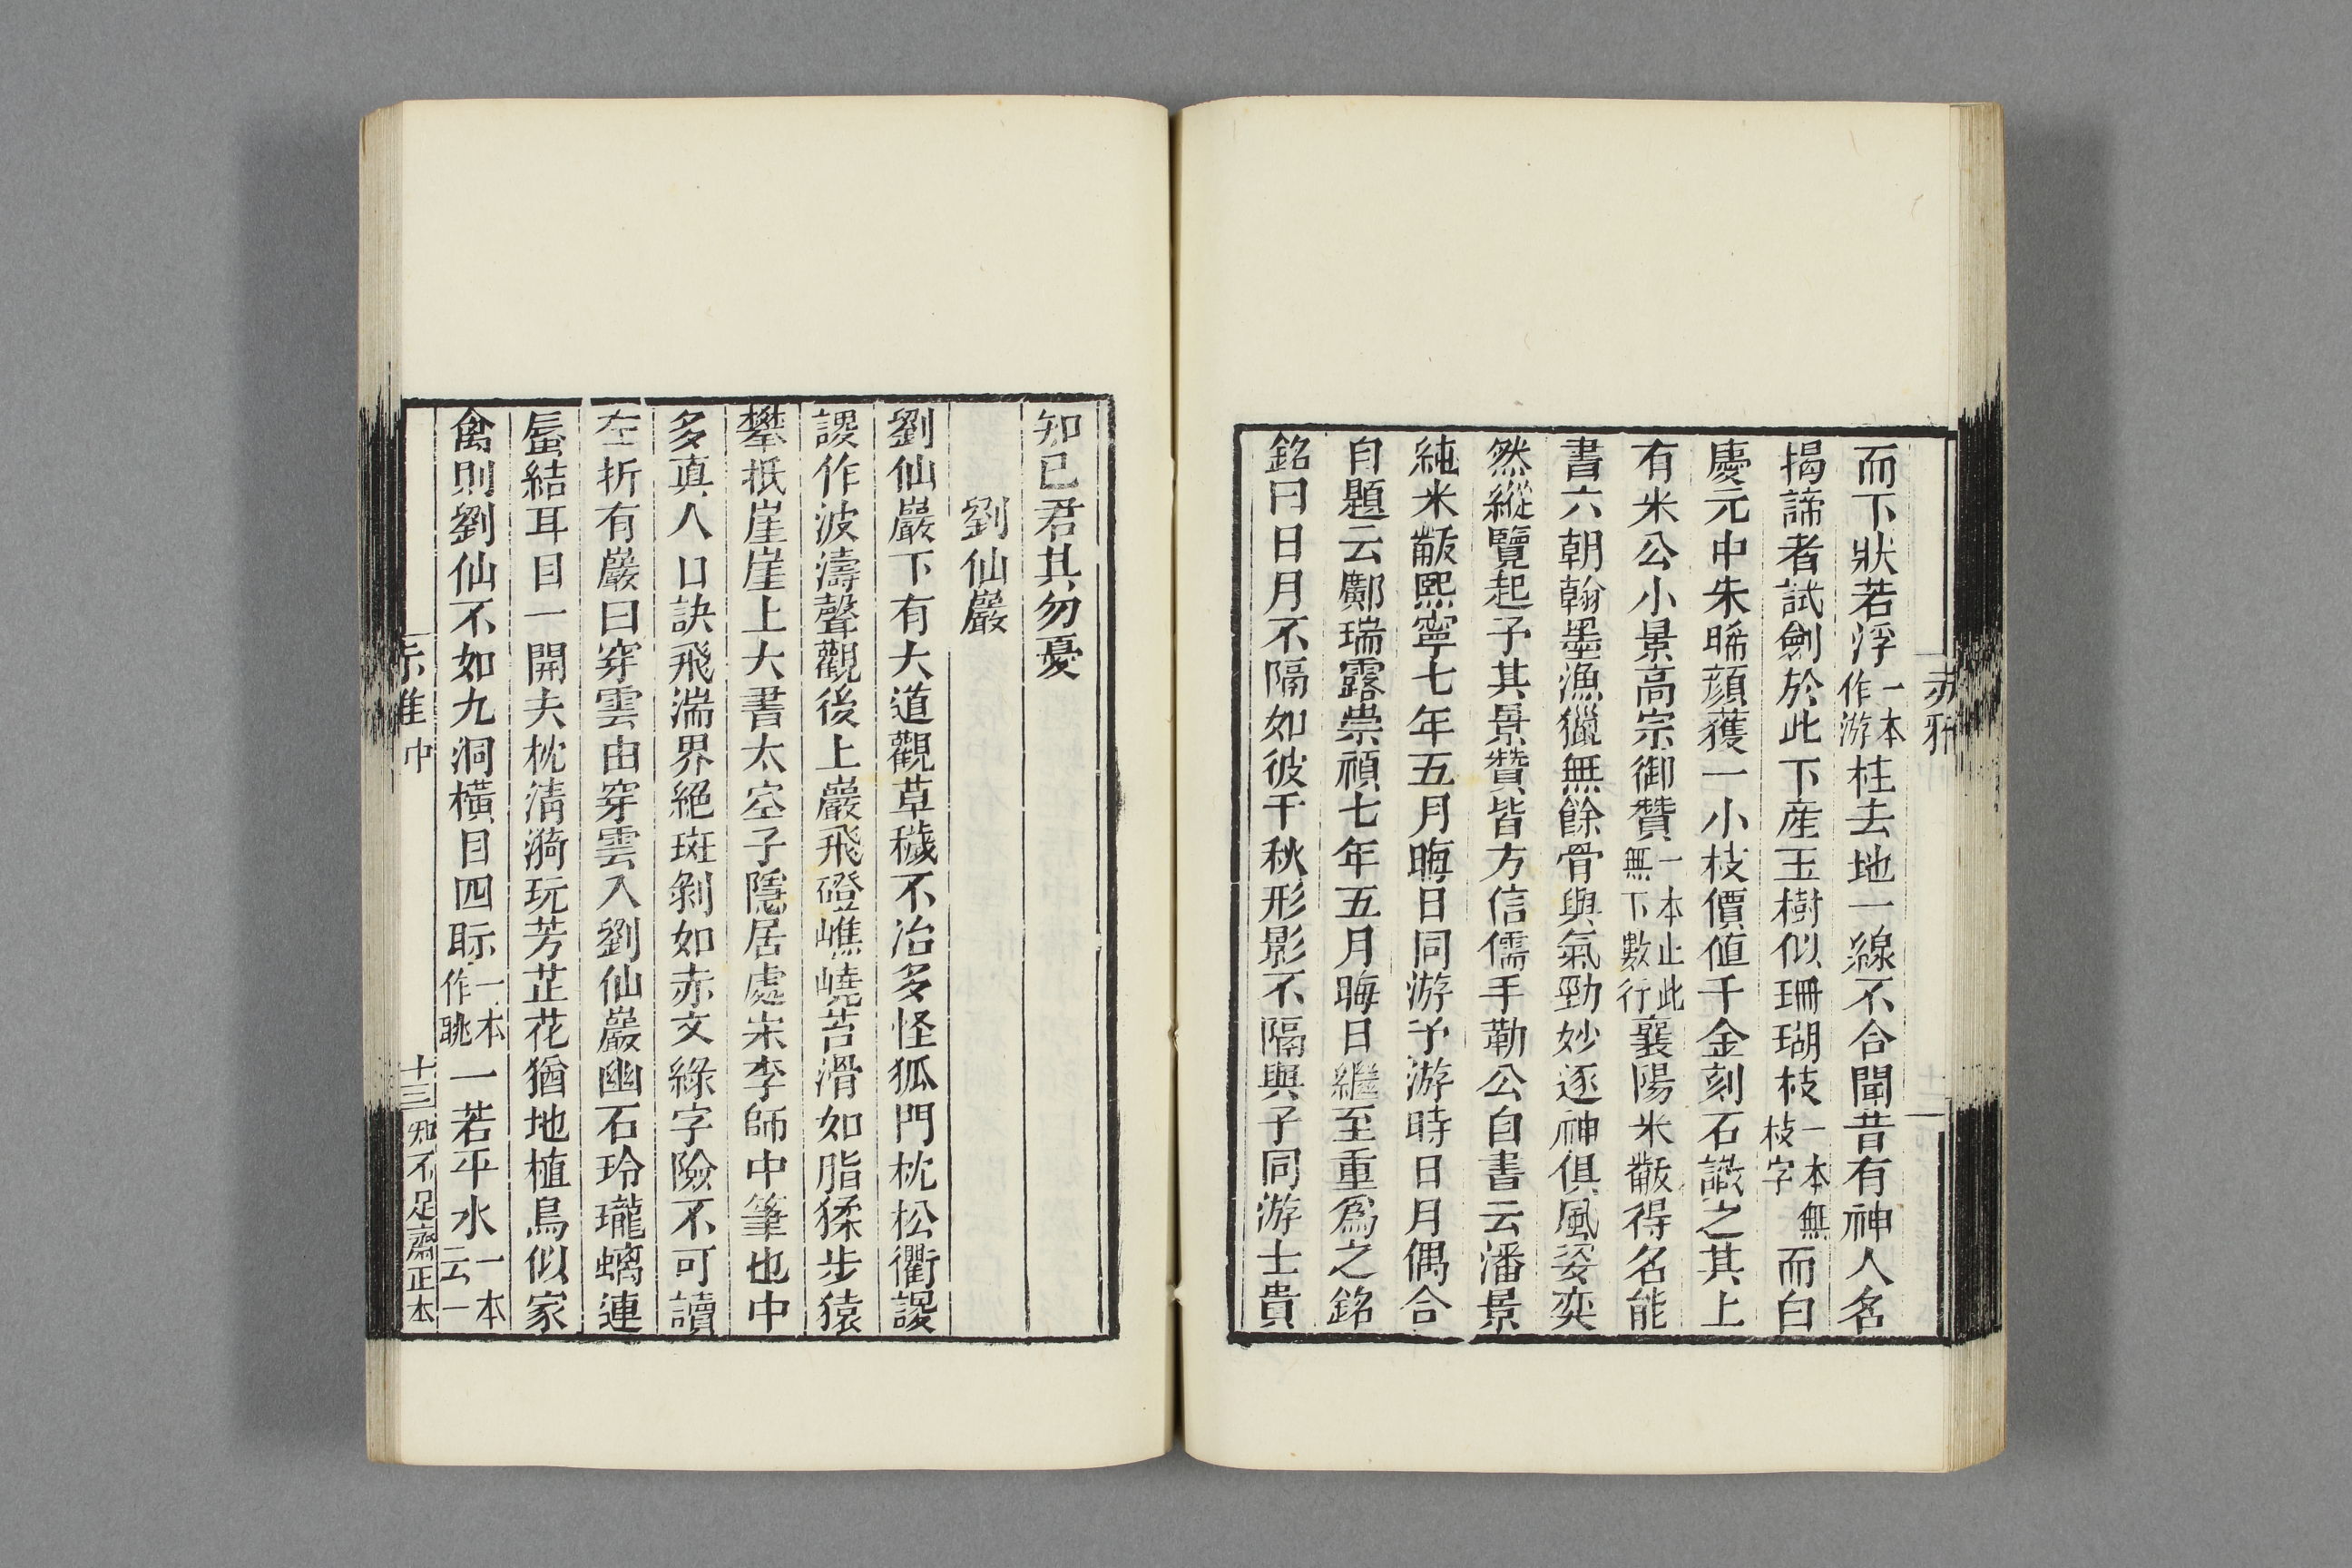 赤雅
而下狀若浮一本作游柱去地一線不合聞昔有神人名
揭諦者試劍於此下産玉樹似珊瑚枝一本無枝字而白
慶元中朱晞顔獲一小枝價値千金刻石識之其上
有米公小景高宗御贊一本止此無下數行襄陽米黻得名能
書六朝翰墨漁獵無餘骨與氣勁妙逐神俱風姿奕
然縱覽起予其景贊皆方信儒手勒公自書云潘景
純米黻熙寧七年五月晦日同游予游時日月偶合
自題云鄺瑞露崇禎七年五月晦日繼至重爲之銘
銘曰日月不隔如彼千秋形影不隔與子同游士貴
知已君其勿憂
劉仙巖
劉仙巖下有大道觀草穢不治多怪狐門枕松衢謖
謖作波濤聲觀後上巖飛磴嶕嶢苔滑如脂猱步猿
攀抵崖崖上大書太空子隱居處宋李師中筆也中
多真人口訣飛湍界絕斑剝如赤文綠字險不可讀
左折有巖曰穿雲由穿雲入劉仙巖幽石玲瓏螭連
蜃結耳目一開夫枕淸漪玩芳芷花猶地植鳥似家
禽則劉仙不如九洞橫目四眎一本作眺一若平水一本云一
赤雅中 十三 知不足齋正本